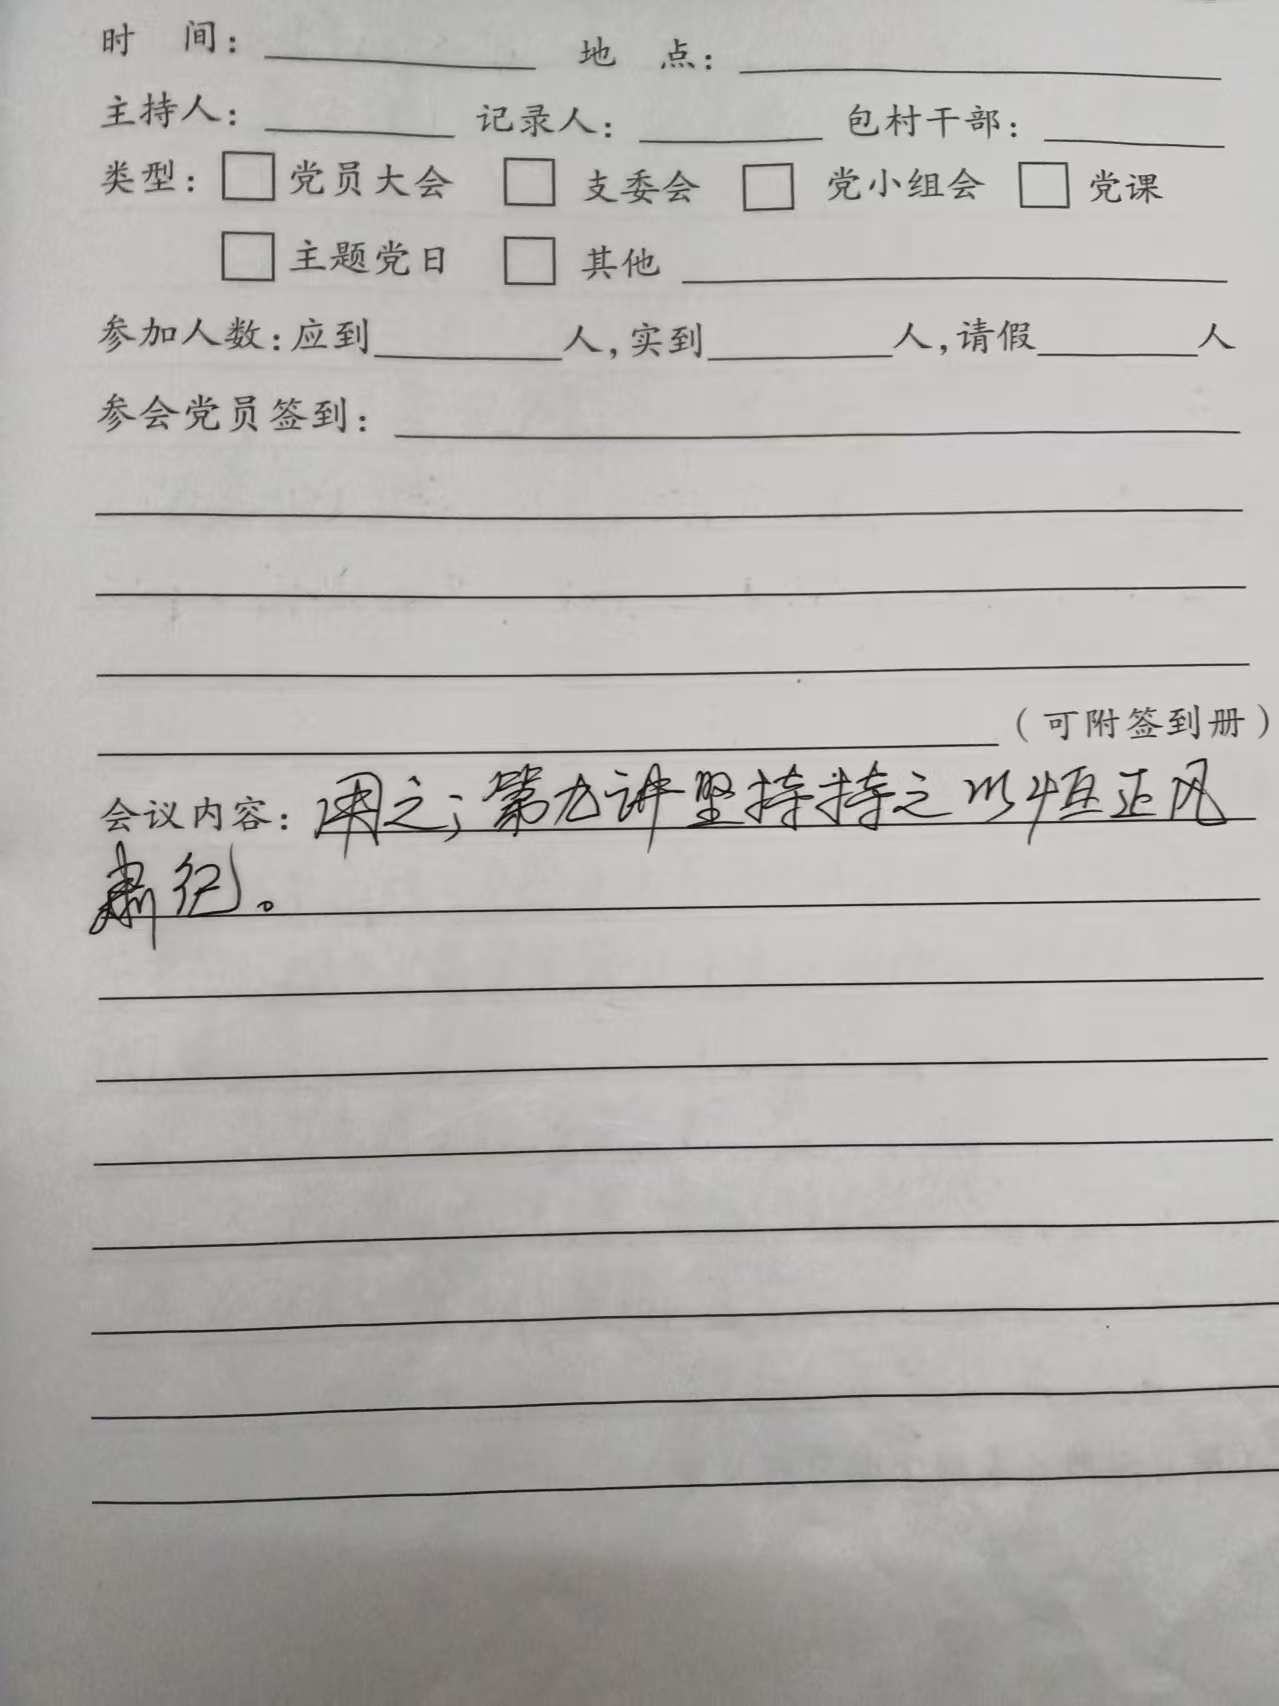 时 间： 地 点：
主持人： 记录人： 包村干部：
类型：□党员大会 □支委会 □党小组会 □党课
□主题党日 □其他
参加人数：应到 人，实到 人，请假 人
参会党员签到：
（可附签到册）
会议内容：用之；第九讲坚持持之以恒正风
肃纪。